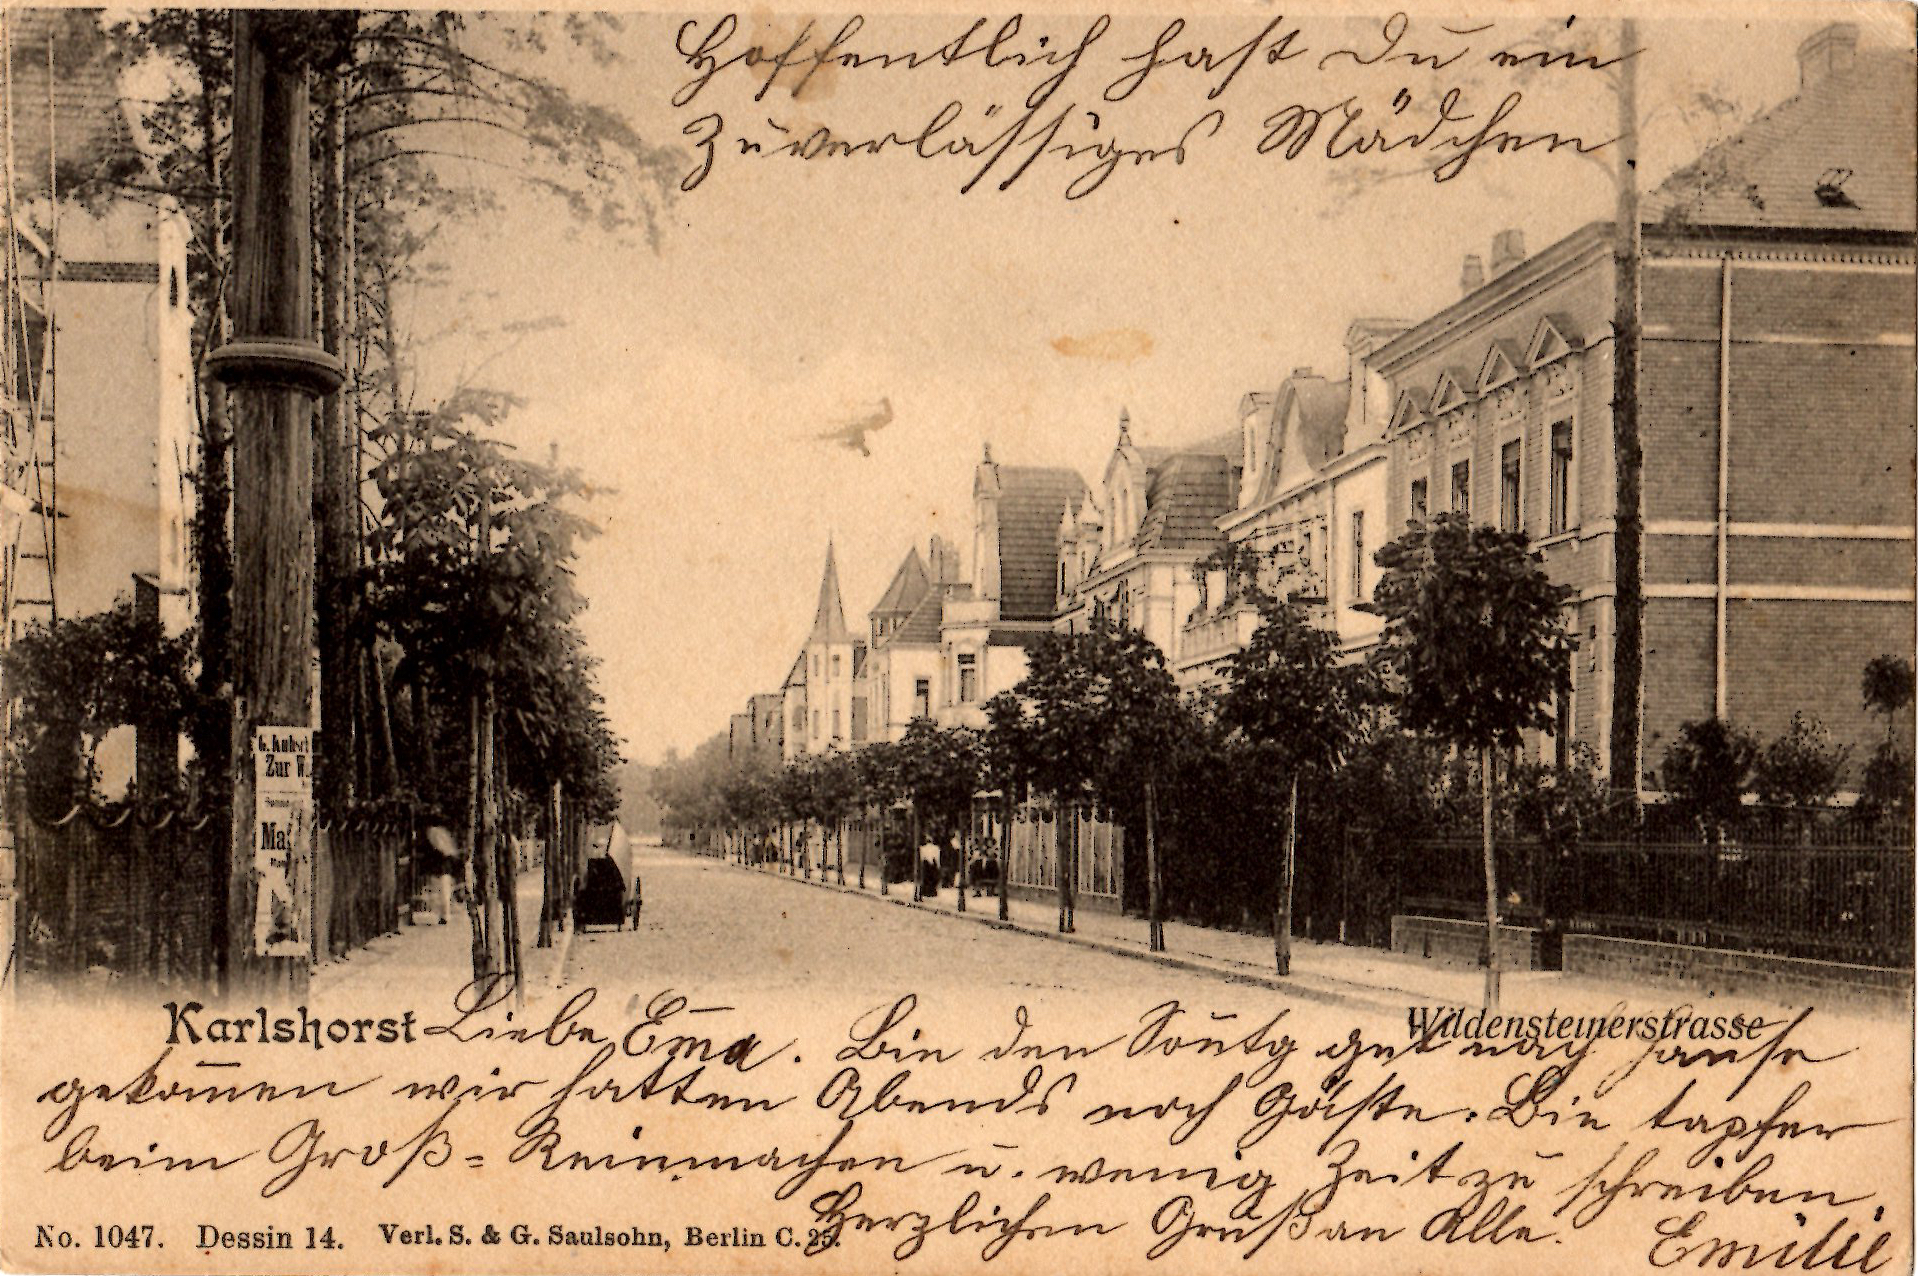 Hoffentlich hast Du ein
Zuverlässiges Mädchen.
G. Kubsch
Zur W.
Ma
Karlshorst
Wildensteinerstrasse
Liebe Em̅a. Bin den Son̅tg gut nach Hause
gekom̅en wir hatten Abends noch Gäste. Bin tapfer
beim Groß=Reinmachen u. wenig Zeit zu schreiben.
Herzlichen Gruß an Alle.
Emilie
No. 1047. Dessin 14. Verl. S. & G. Saulsohn, Berlin C. 25.